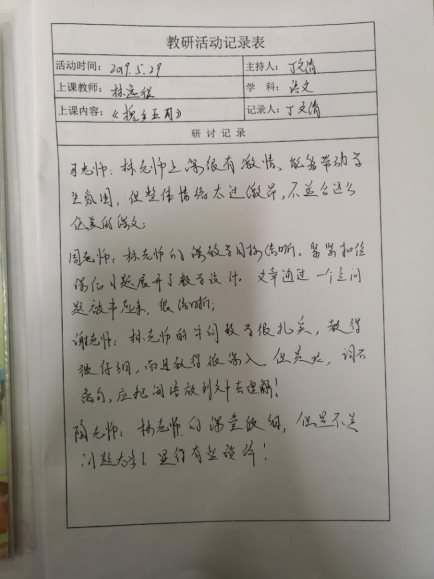 教研活动记录表
活动时间: 2019.5.29 主持人: 丁文清
上课教师: 林 学 科: 语文
上课内容: 《槐乡五月》 记录人: 丁文清
研 讨 记 录
老师: 林老师上课很有激情, 能够带动学
生氛围, 但整体情绪太过激昂, 不适合这么
优美的课文。
周老师: 林老师的课教学目标清晰, 紧紧扣住
课后习题展开了教学设计. 文章通过一个主问
题被串起来, 很清晰;
谢老师: 林老师的字词教学很扎实, 教得
很仔细, 而且教得很深入, 但是, 词不
离句, 应把词语放到文中去理解!
陶老师: 林老师的课堂很细, 但是不是
问题太多了 显得有些琐碎!